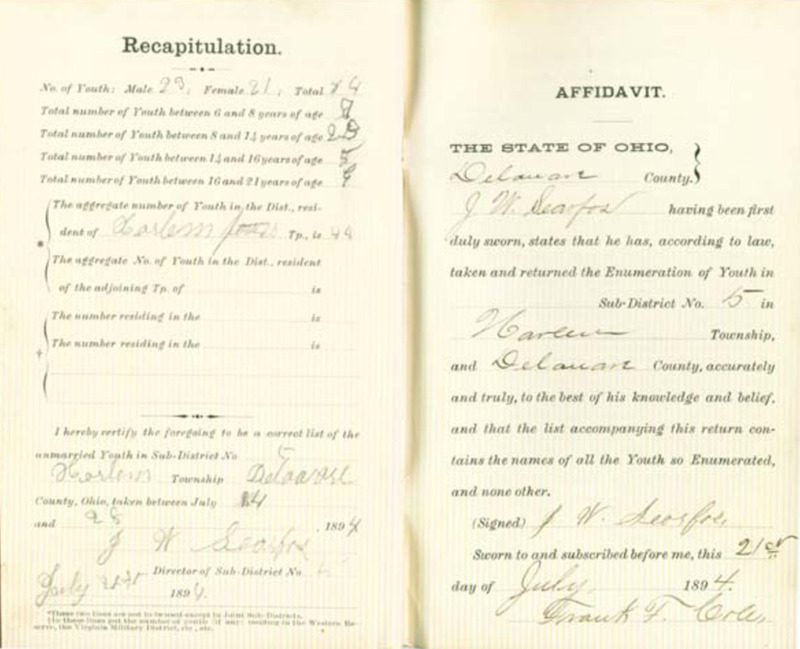 Recapitulation.
No. of Youth: Male 23, Female 21, Total 44
Total number of Youth between 6 and 8 years of age
Total number of Youth between 8 and 14 years of age 23
Total number of Youth between 14 and 16 years of age 5
Total number of Youth between 16 and 21 years of age
The aggregate number of Youth in the Dist., resi-
dent of Harlem Tp., is 44
The aggregate No. of Youth in the Dist., resident
of the adjoining Tp. of is
The number residing in the is
The number residing in the is
I hereby certify the foregoing to be a correct list of the
unmarried Youth in Sub-District No 5
Harlem Township Delaware
County, Ohio, taken between July 14
and 28, 1894
J W Searfos
Director of Sub-District No.
July 1894.
*These two lines are not to be used except in Joint Sub-Districts.
†In these lines put the number of youth (if any) residing in the Western Re-
serve, the Virginia Military District, etc., etc.
AFFIDAVIT.
THE STATE OF OHIO,
Delaware County.
J W. Searfos having been first
duly sworn, states that he has, according to law,
taken and returned the Enumeration of Youth in
Sub-District No. 5 in
Harlem Township,
and Delaware County, accurately
and truly, to the best of his knowledge and belief,
and that the list accompanying this return con-
tains the names of all the Youth so Enumerated,
and none other.
(Signed) J W. Searfos,
Sworn to and subscribed before me, this 21st
day of July. 1894.
Frank F.